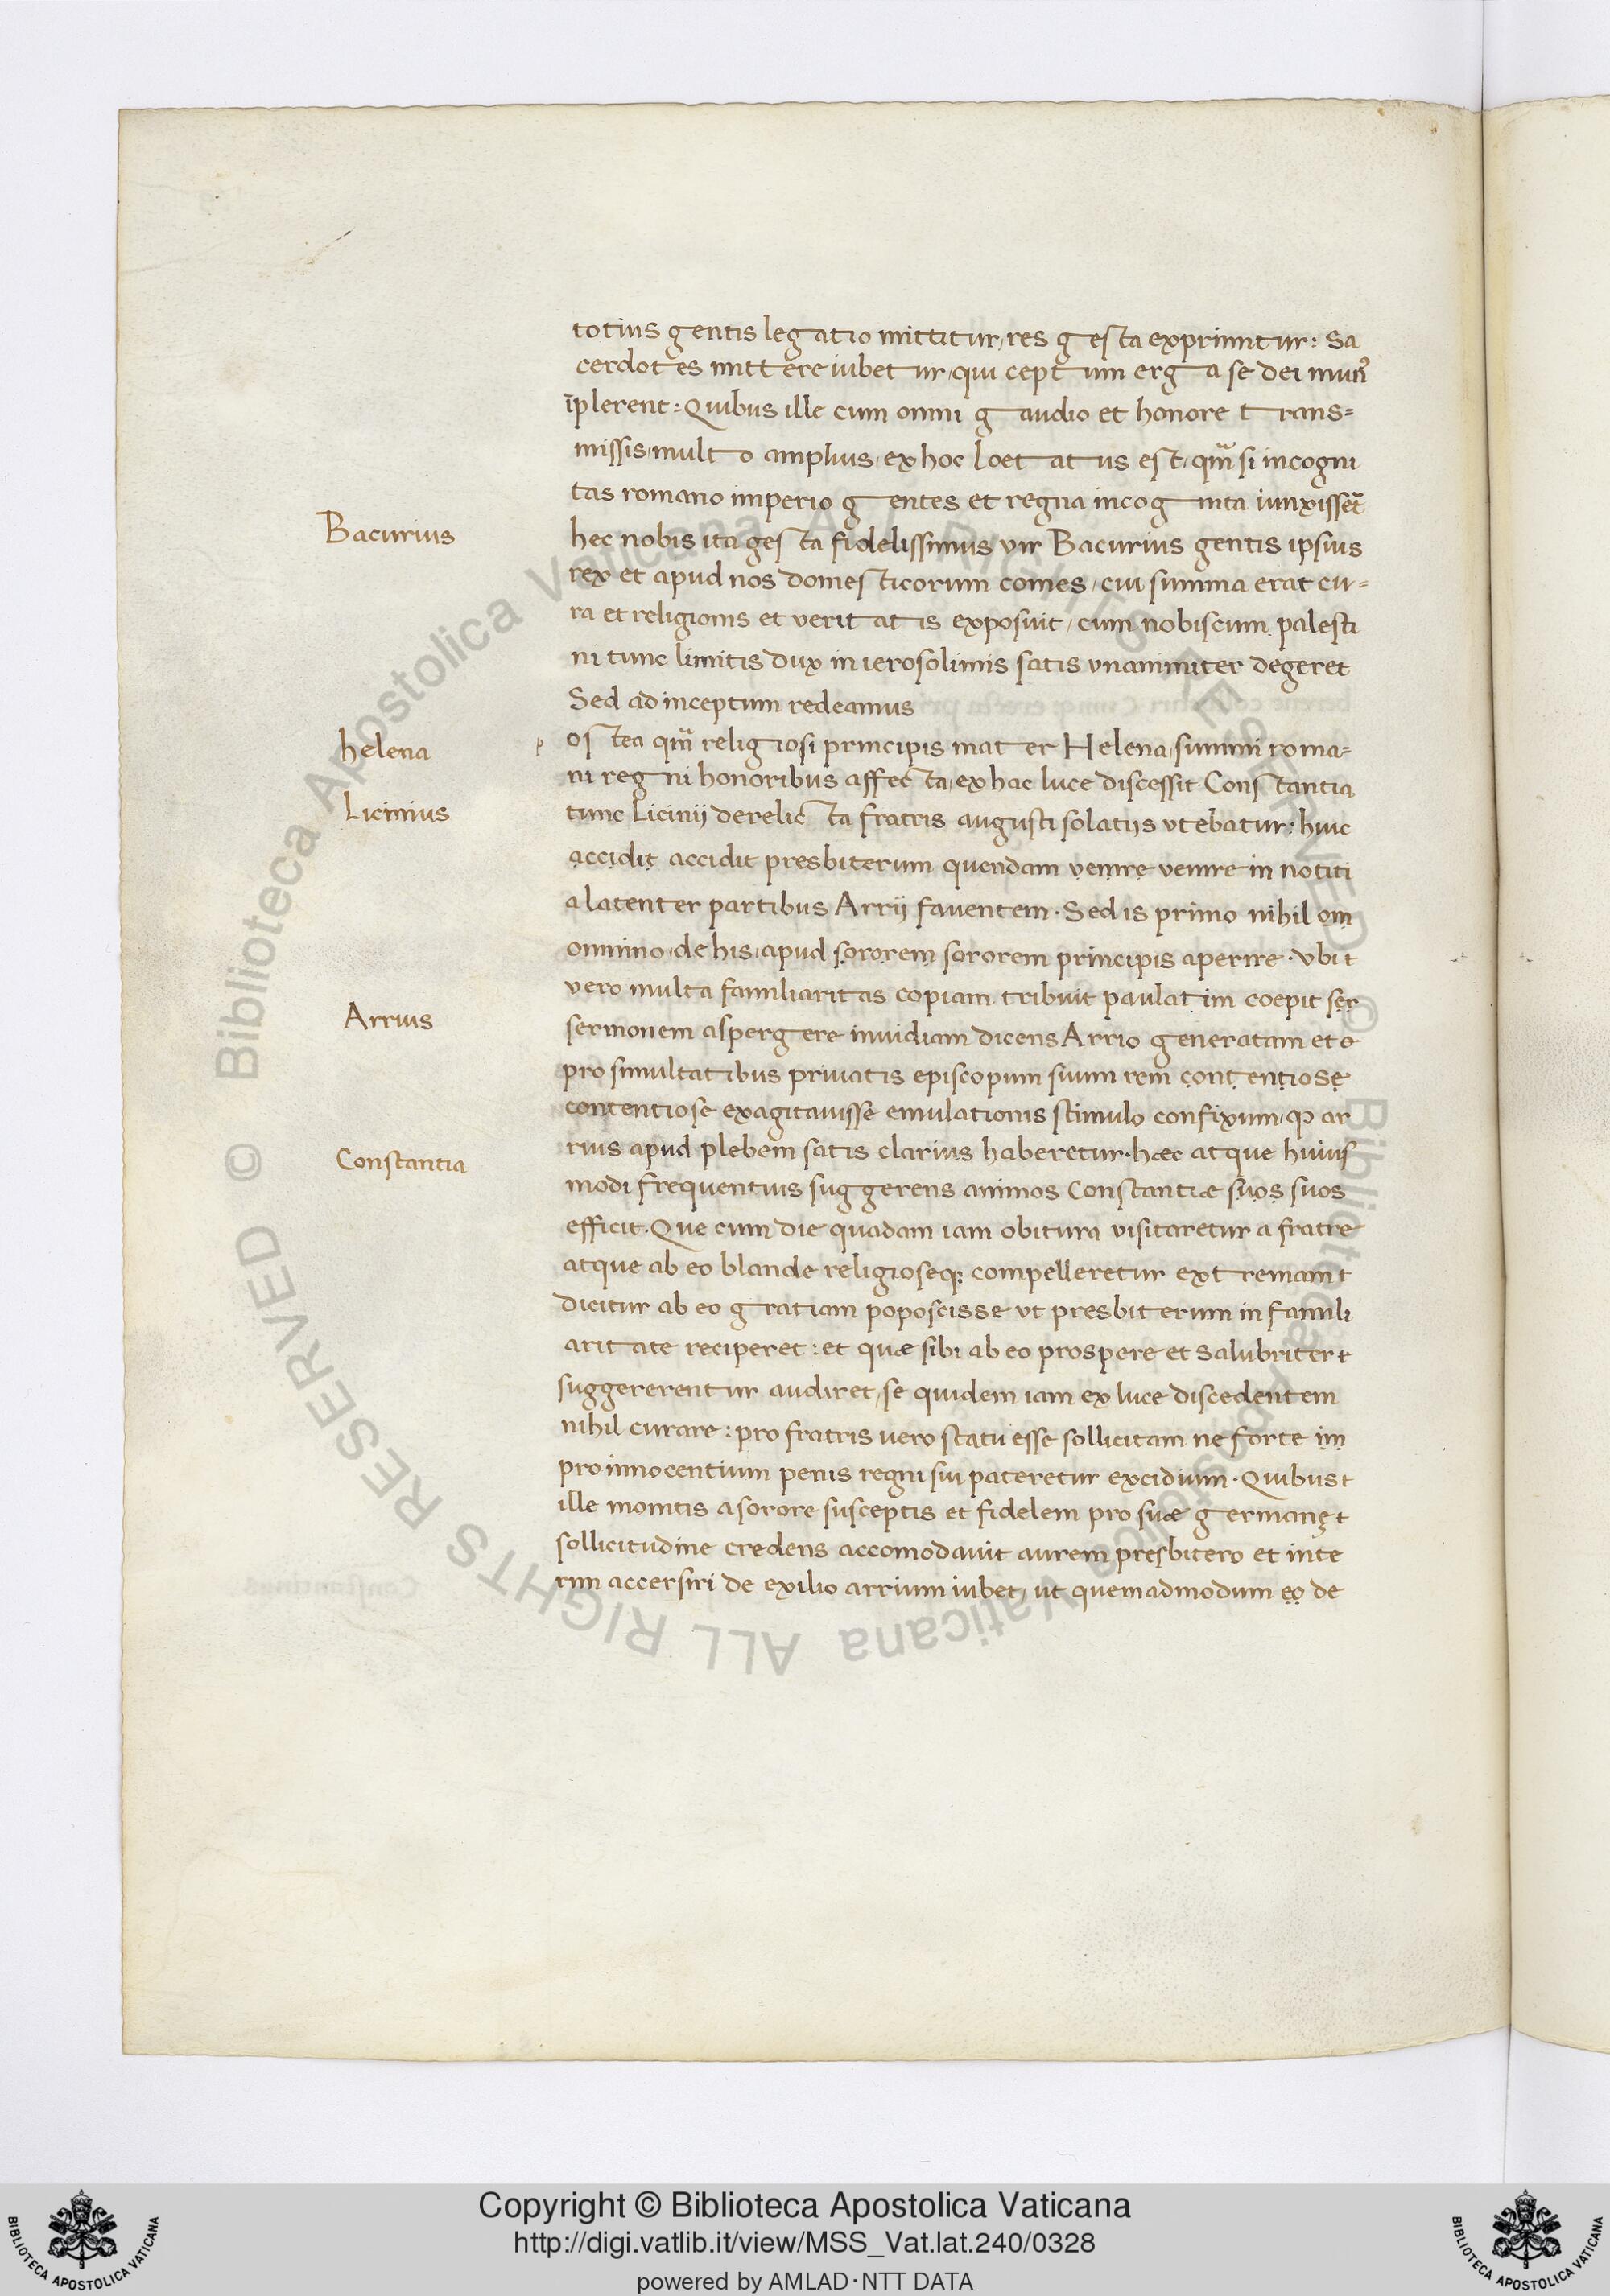 totius gentis legatio mittitur, res gesta exprimitur: Sa
cerdotes mittere iubetur, qui ceptum erga se dei mun᷒
īplerent: Quibus ille cum omni gaudio et honore trans=
missis, multo amplius, ex hoc loetatus est, qm̄ si incogni
tas romano imperio gentes et regna incognita iunxisset
Bacurius
hec nobis ita gesta fidelissimus vir Bacurius gentis ipsius
rex et apud nos domesticorum comes, cui summa erat cu=
ra et religionis et veritatis exposuit, cum nobiscum palesti
ni tunc limitis dux in ierosolimis satis vnanimiter degeret
Sed ad inceptum redeamus
helena
p ostea qm̄ religiosi principis mater Helena, summi roma=
ni regni honoribus affecta, ex hac luce discessit Constantia
Licinius
tunc Licinij derelicta fratris augusti solatijs vtebatur: huic
accidit accidit presbiterum quendam venire venire in notiti
a latenter partibus Arrij fauentem. Sed is primo nihil om
omnino, de his, apud sororem sororem principis aperire. vbi t
vero multa familiaritas copiam tribuit paulatim coepit ser
Arrius
sermonem aspergere inuidiam dicens Arrio generatam et e
pro simultatibus priuatis episcopum suum rem contentiose
contentiose exagitauisse emulationis stimulo confixum, qp ar
Constantia
rius apud plebem satis clarius haberetur. hæc atque huius
modi frequentius suggerens animos Constantiæ suos suos
efficit. Que cum die quadam iam obitura visitaretur a fratre
atque ab eo blande religioseq; compelleretur extremam t
dicitur ab eo gratiam poposcisse vt presbiterum in famili
aritate reciperet: et quæ sibi ab eo prospere et salubriter t
suggererentur audiret, se quidem iam ex luce discedentem
nihil curare: pro fratris uero statu esse sollicitam ne forte im
pro innocentium penis regni sui pateretur excidium. Quibus t
ille monitis a sorore susceptis et fidelem pro suæ germanę t
sollicitudine credens accomodauit aurem presbitero et inte
rim accersiri de exilio arrium iubet, ut quemadmodum eo de
Copyright © Biblioteca Apostolica Vaticana
http://digi.vatlib.it/view/MSS_Vat.lat.240/0328
powered by AMLAD·NTT DATA
BIBLIOTECA APOSTOLICA VATICANA
BIBLIOTECA APOSTOLICA VATICANA
© Biblioteca Apostolica Vaticana ALL RIGHTS RESERVED
© Biblioteca Apostolica Vaticana ALL RIGHTS RESERVED